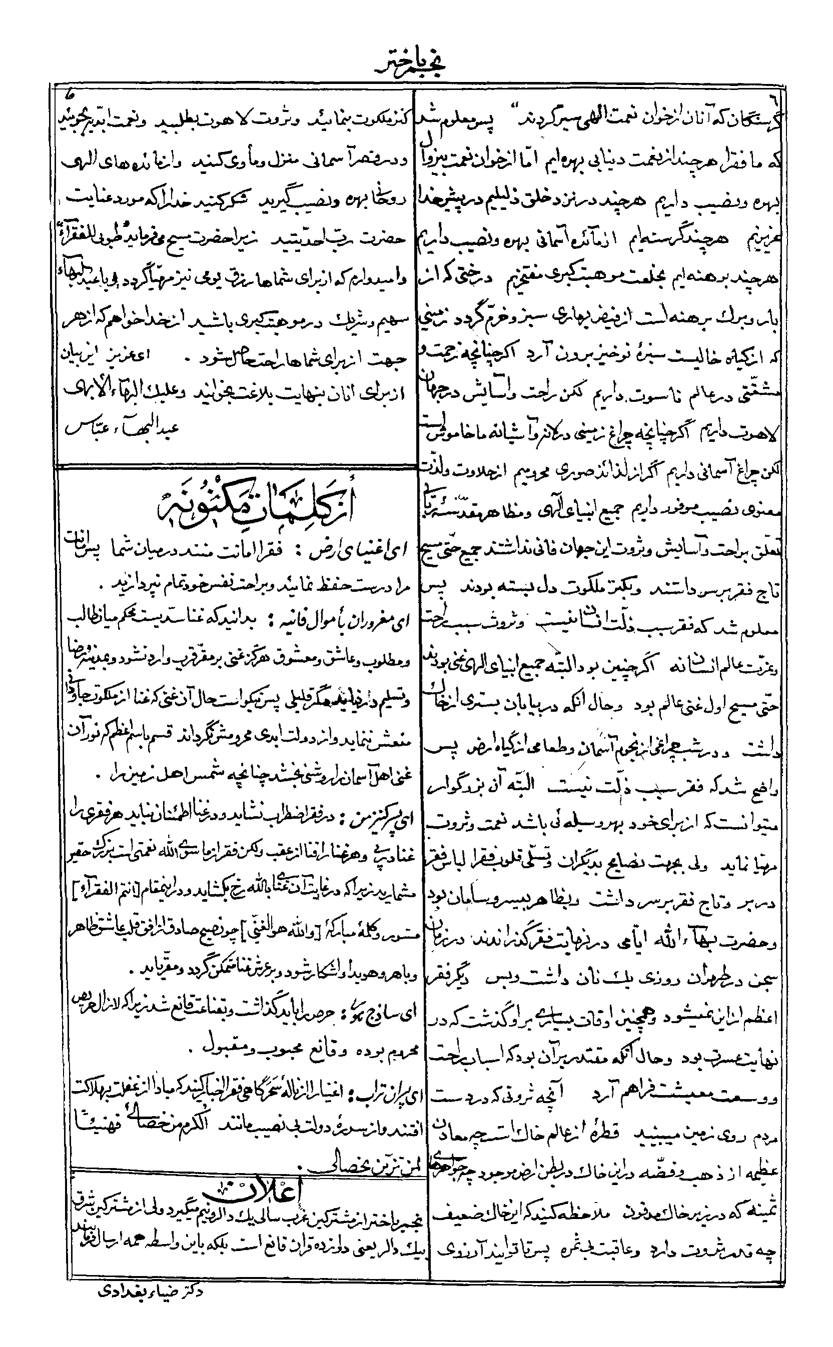 نجم باختر
٦
گرسنگان که آنان از خوان نعمت الهی سیر گردند" پس معلوم شد
که ما فقرا هر چند از نعمت دنیا بی بهره ایم امّا از خوان نعمت بیزوال
بهره و نصیب داریم هر چند در نزد خلق ذلیلیم در پیش خدا
عزیزیم هر چند گرسنه ایم از مائده آسمانی بهره و نصیب داریم
هر چند برهنه ایم بخلعت موهبت کبری مفتخریم درختی که از
بار و برگ برهنه است از فیض بهاری سبز و خرّم گردد زمینی
که از گیاه خالیست سبزهٔ نوخیز برون آرد اگر چنانچه زحمت و
مشقّتی در عالم ناسوت داریم لکن راحت و آسایش در جهان
لاهوت داریم اگر چنانچه چراغ زمینی در لانه و آشیانه ما خاموش است
لکن چراغ آسمانی داریم اگر از لذائذ صوری محرومیم از حلاوت ولذّت
معنوی نصیب موفور داریم جمیع انبیای الهی و مظاهر مقدّسهٔ ربّانی
تعلّق براحت و آسایش و ثروت این جهان فانی نداشتند جمیع حتّی مسیح
تاج فقر بر سر داشتند و بکنز ملکوت دل بسته بودند پس
معلوم شد که فقر سبب ذلّت انسان نیست و ثروت سبب راحت
و عزّت عالم انسان نه اگر چنین بود البتّه جمیع انبیای الهی غنی بودند
حتّی مسیح اول غنی عالم بود و حال آنکه در بیابان بستری از خاک
داشت و در شب چراغی از نجوم آسمان و طعامی از گیاه ارض پس
واضح شد که فقر سبب ذلّت نیست البتّه آن بزرگوار
میتوانست که از برای خود بهر وسیله ئی باشد نعمت و ثروت
مهیّا نماید ولی بجهت نصایح بدیگران و تسلّی قلوب فقرا لباس فقر
در بر و تاج فقر بر سر داشت و بظاهر بیسر و سامان بود
و حضرت بهاء الله ایّامی در نهایت فقر گذراندند در زمان
سجن در طهران روزی یک نان داشت و بس دیگر فقر
اعظم از این نمیشود و همچنین اوقات بسیاری بر او گذشت که در
نهایت عسرت بود و حال آنکه مقتدر بر آن بود که اسباب راحت
و وسعت معیشت فراهم آرد آنچه ثروتی که در دست
مردم روی زمین میبینید قطرهٔ از عالم خاک است چه معادن
عظیمه از ذهب و فضّه در این خاک در بطن ارض موجود چه جواهرهای
ثمینه که در زیر خاک مدفون ملاحظه کنید که این خاک ضعیف
چه قدر ثروت دارد و عاقبت بی ثمره پس تا توانید آرزوی
کنز ملکوت بنمائید و ثروت لاهوت بطلبید و نعمت ابدیّه بجوئید
و در قصر آسمانی منزل و مأوی کنید و از مائده های الهی
روحانی بهره و نصیب گیرید شکر کنید خدا را که مورد عنایت
حضرت ربّ احدیّتید زیرا حضرت مسیح میفرماید طوبی للفقرآء
و امیدوارم که از برای شماها رزق یومی نیز مهیّا گردد و با عبدالبهاء
سهیم و شریک در موهبت کبری باشید از خدا خواهم که از هر
جهت از برای شماها راحت حاصل شود . ای عزیز این بیان
از برای آنان بنهایت بلاغت بخوانید و علیک البهآء الابهی
عبد البهآء عبّاس
از کلمات مکنونه
ای اغنیای ارض : فقرا امانت منند در میان شما پس امانت
مرا درست حفظ نمائید و براحت نفس خود تمام نپردازید .
ای مغروران بأموال فانیه : بدانید که غنا سدّیست محکم میان طالب
و مطلوب و عاشق و معشوق هرگز غنی بر مقرّ قرب وارد نشود و بمدینهٔ رضا
و تسلیم در نیاید مگر قلیلی پس نیکو است حال آن غنی که غنا از ملکوت جاودانی
منعش ننماید و از دولت ابدی محرومش نگرداند قسم باسم اعظم که نور آن
غنی اهل آسمان را روشنی بخشد چنانچه شمس اهل زمین را .
ای پسر کنیز من : در فقر اضطراب نشاید و در غنا اطمئنان نباید هر فقری را
غنا در پی و هر غنا را فنا از عقب ولکن فقر از ما سوی الله نعمتی است بزرگ حقیر
مشمارید زیرا که در غایت آن غنای بالله رخ بگشاید و در این مقام [انتم الفقرآء]
مستور و کلمهٔ مبارکهٔ [والله هو الغنیّ] چون صبح صادق از افق قلب عاشق ظاهر
و باهر و هویدا و آشکار شود و بر عرش غنا متمکّن گردد و مقرّ یابد .
ای ساذج هوی : حرص را باید گذاشت و بقناعت قانع شد زیرا که لازال حریص
محروم بوده و قانع محبوب و مقبول .
ای پسران تراب : اغنیا را از نالهٔ سحرگاهی فقرا اخبار کنید که مبادا از غفلت بهلاکت
افتند و از سدرهٔ دولت بی نصیب مانند الکرم من خصالی فهنیئاً
لمن تزیّن بخصالی .
اعلان
نجم باختر از مشترکین غرب سالی یک دالر و نیم میگیرد ولی از مشترکین شرق
بیک دالر یعنی دوازده قران قانع است بلکه باین واسطه همه ارسال فرمایند
دکتر ضیاء بغدادی